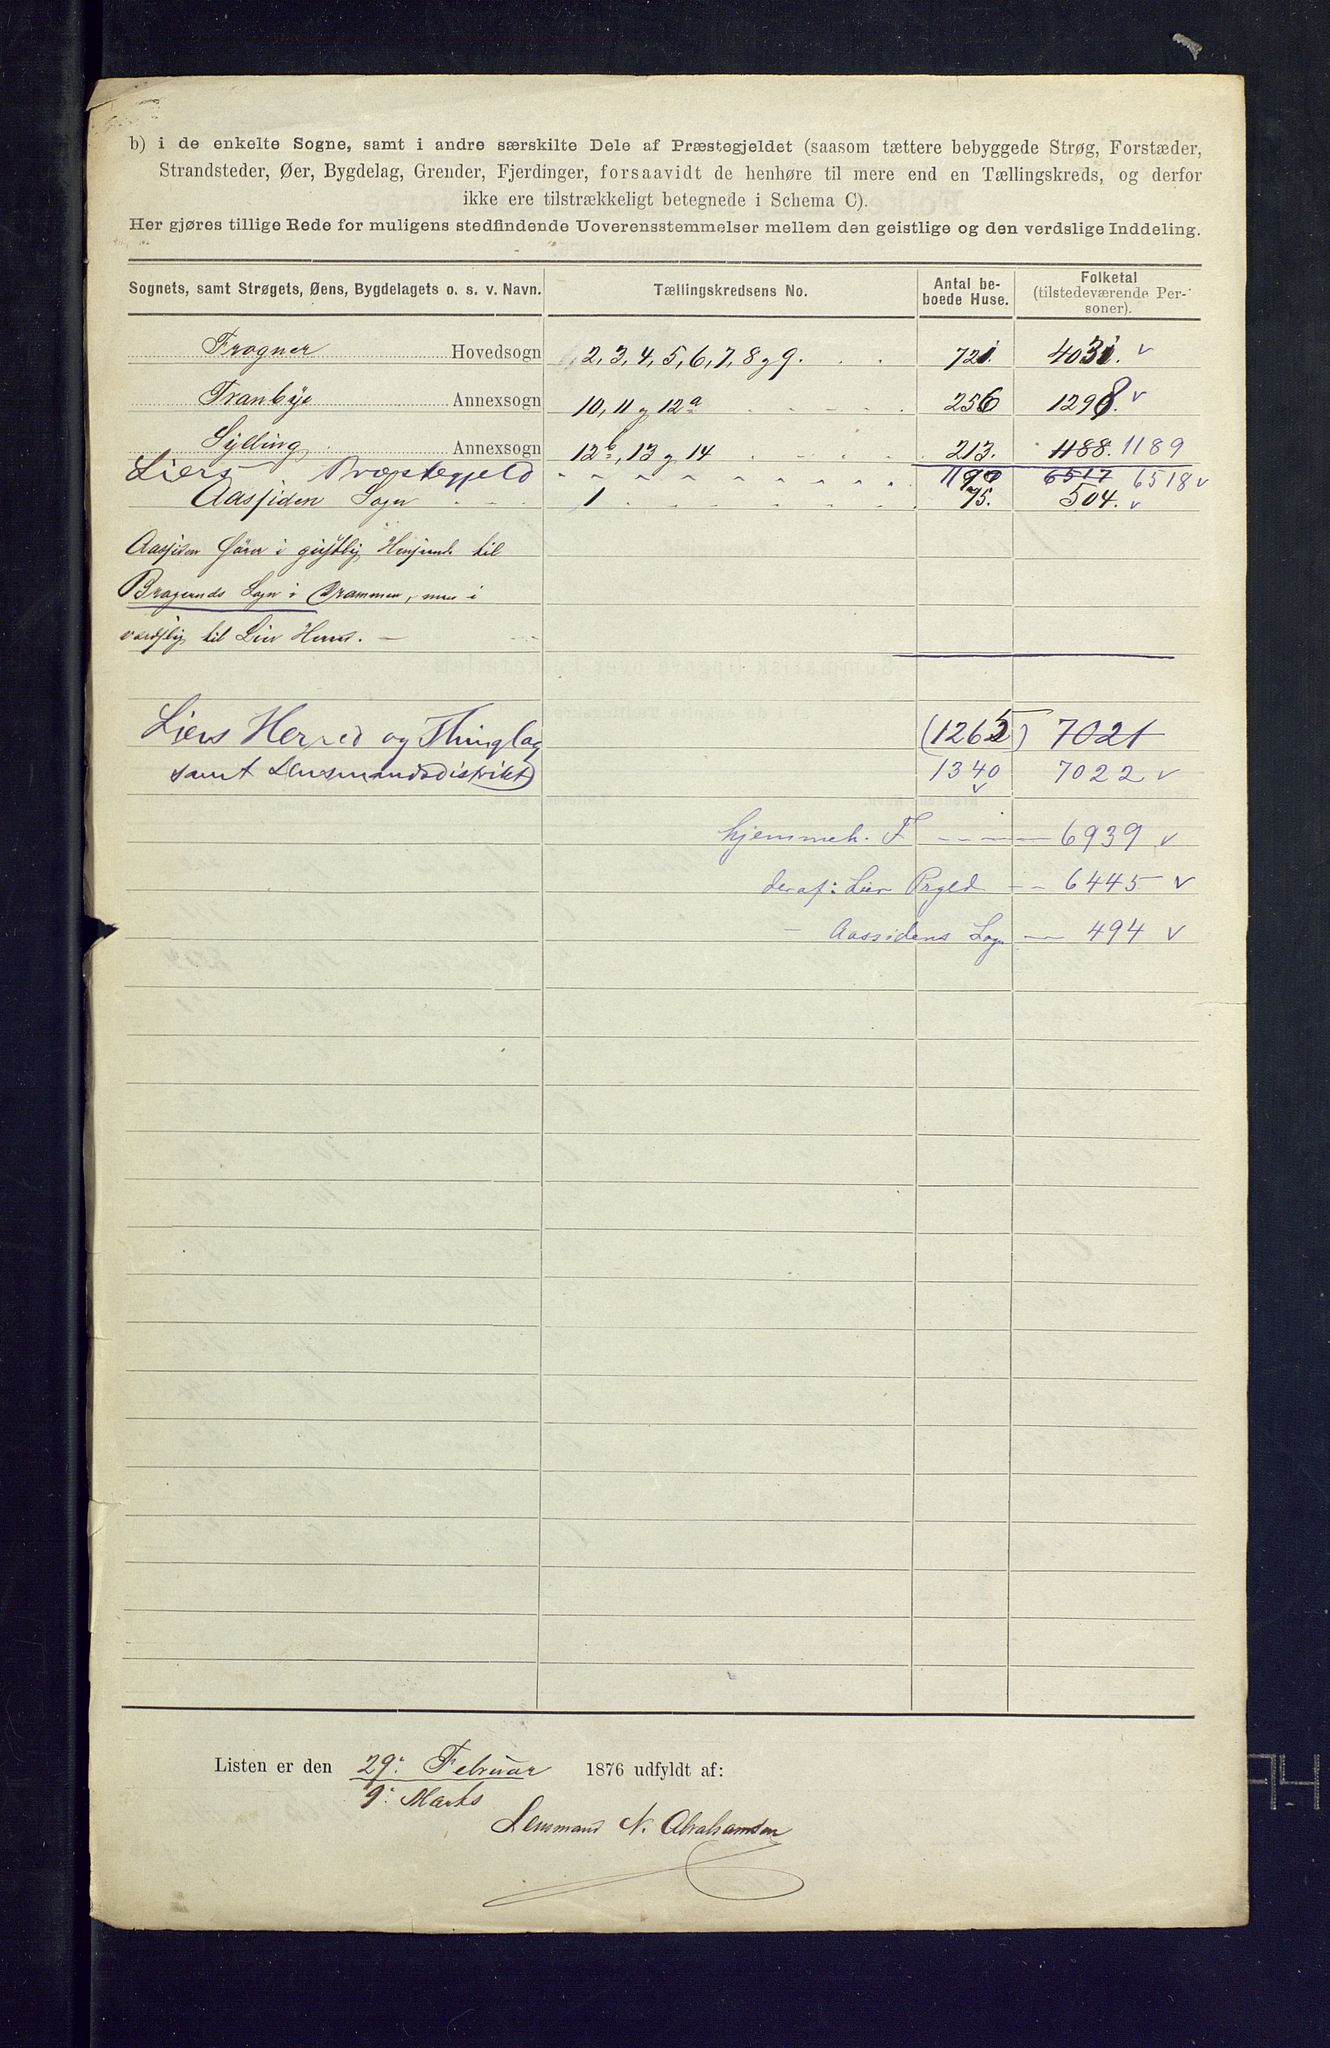 b) i de enkelte Sogne, samt i andre særskilte Dele af Præstegjeldet (saasom tættere bebyggede Strøg, Forstæder,
Strandsteder, Øer, Bygdelag, Grender, Fjerdinger, forsaavidt de henhøre til mere end en Tællingskreds, og derfor
ikke ere tilstrækkeligt betegnede i Schema C).
Her gjøres tillige Rede for muligens stedfindende Uoverensstemmelser mellem den geistlige og den verdslige Inddeling.
Sognets, samt Strøgets, Øens, Bygdelagets o. s. v. Navn. Tællingskredsens No. Antal beboede Huse. Folketal (tilstedeværende Personer).
Frogner Hovedsogn 2, 3, 4, 5, 6, 7, 8 og 9. 721. 4031. v
Tranbye Annexsogn 10, 11 og 12a 256 1298. v
Sylling Annexsogn 12b, 13 og 14 213. 1188. 1189
Liers Præstegjeld 1190 6517 6518 v
Aassiden Sogn 1 75. 504. v
Aassiden hører i gejstlig Henseende til
Bragernæs Sogn i Drammen, men i
verdslig til Lier Herred. —
Liers Herred og Thinglag (1265) 7021
samt Lensmandsdistrikt 1340 v 7022 v
hjemmeh. F — 6939 v
deraf: Lier Prgld — 6445 v
— Aassidens Sogn — 494 v
Listen er den 29de Februar 1876 udfyldt af:
9de Marts
Lensmand N. Abrahamsen